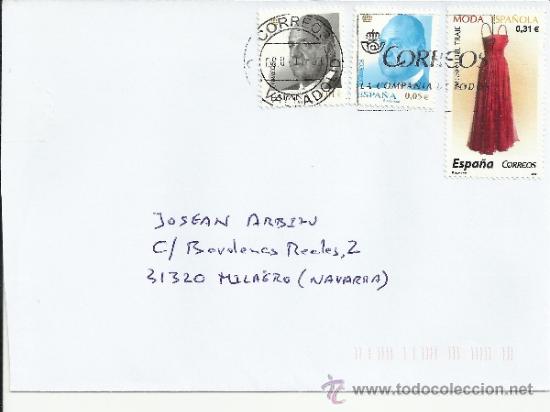 CORREOS
VALLADOLID
CORREOS
LA COMPAÑIA DE TODOS
ESPAÑA
0,05 €
MODA ESPAÑOLA
0,31 €
MUSEO DEL TRAJE
España CORREOS
JOSEAN ARBIZU
C/ Bardenas Reales, 2
31320 MILAGRO (NAVARRA)
www.todocoleccion.net